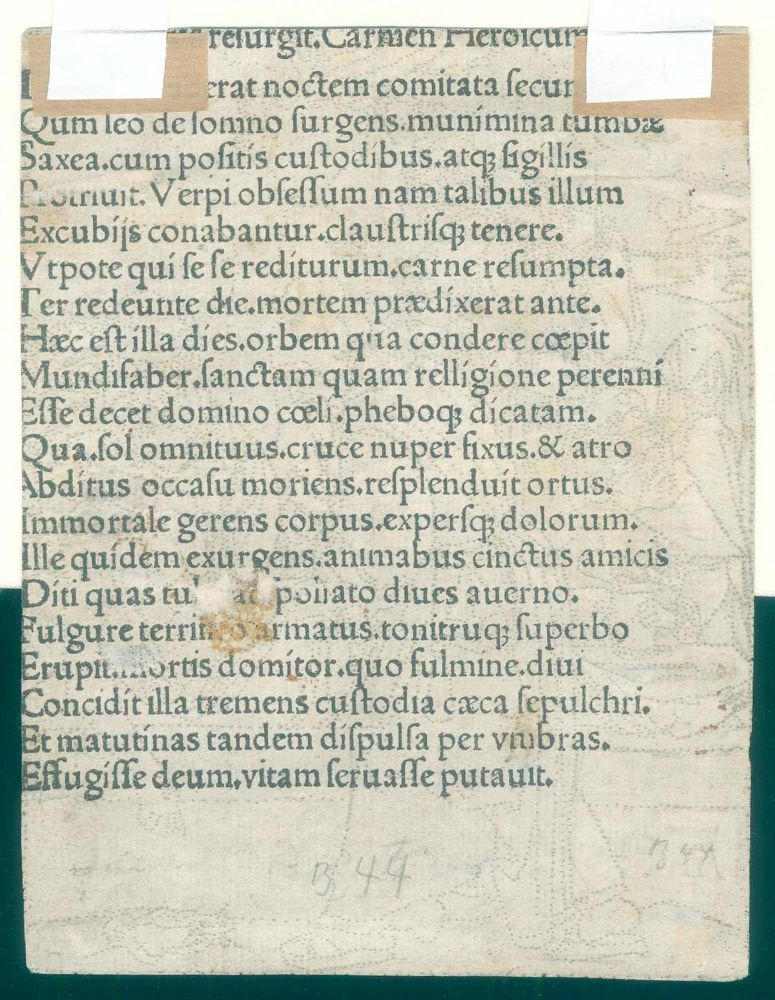 reſurgit.Carmen Heroicum
erat noctem comitata ſecun
Qum leo de ſomno ſurgens.munimina tumbæ
Saxea.cum poſitis cuſtodibus.atqꝫ ſigillis
Protriuit. Verpi obſeſſum nam talibus illum
Excubijs conabantur.clauſtriſqꝫ tenere.
Vtpote qui ſe ſe rediturum.carne reſumpta.
Ter redeunte die.mortem prædixerat ante.
Hæc eſt illa dies.orbem qua condere cœpit
Mundifaber.ſanctam quam relligione perenni
Eſſe decet domino cœli.pheboqꝫ dicatam.
Qua.ſol omnituus.cruce nuper fixus.& atro
Abditus occaſu moriens.reſplenduit ortus.
Immortale gerens corpus.experſqꝫ dolorum.
Ille quidem exurgens.animabus cinctus amicis
Diti quas ſpoliato diues auerno.
Fulgure armatus.tonitruqꝫ ſuperbo
Erupit.mortis domitor.quo fulmine.diui
Concidit illa tremens cuſtodia cæca ſepulchri.
Et matutinas tandem diſpulſa per vmbras.
Effugiſſe deum.vitam ſeruaſſe putauit.
B 44
B 44